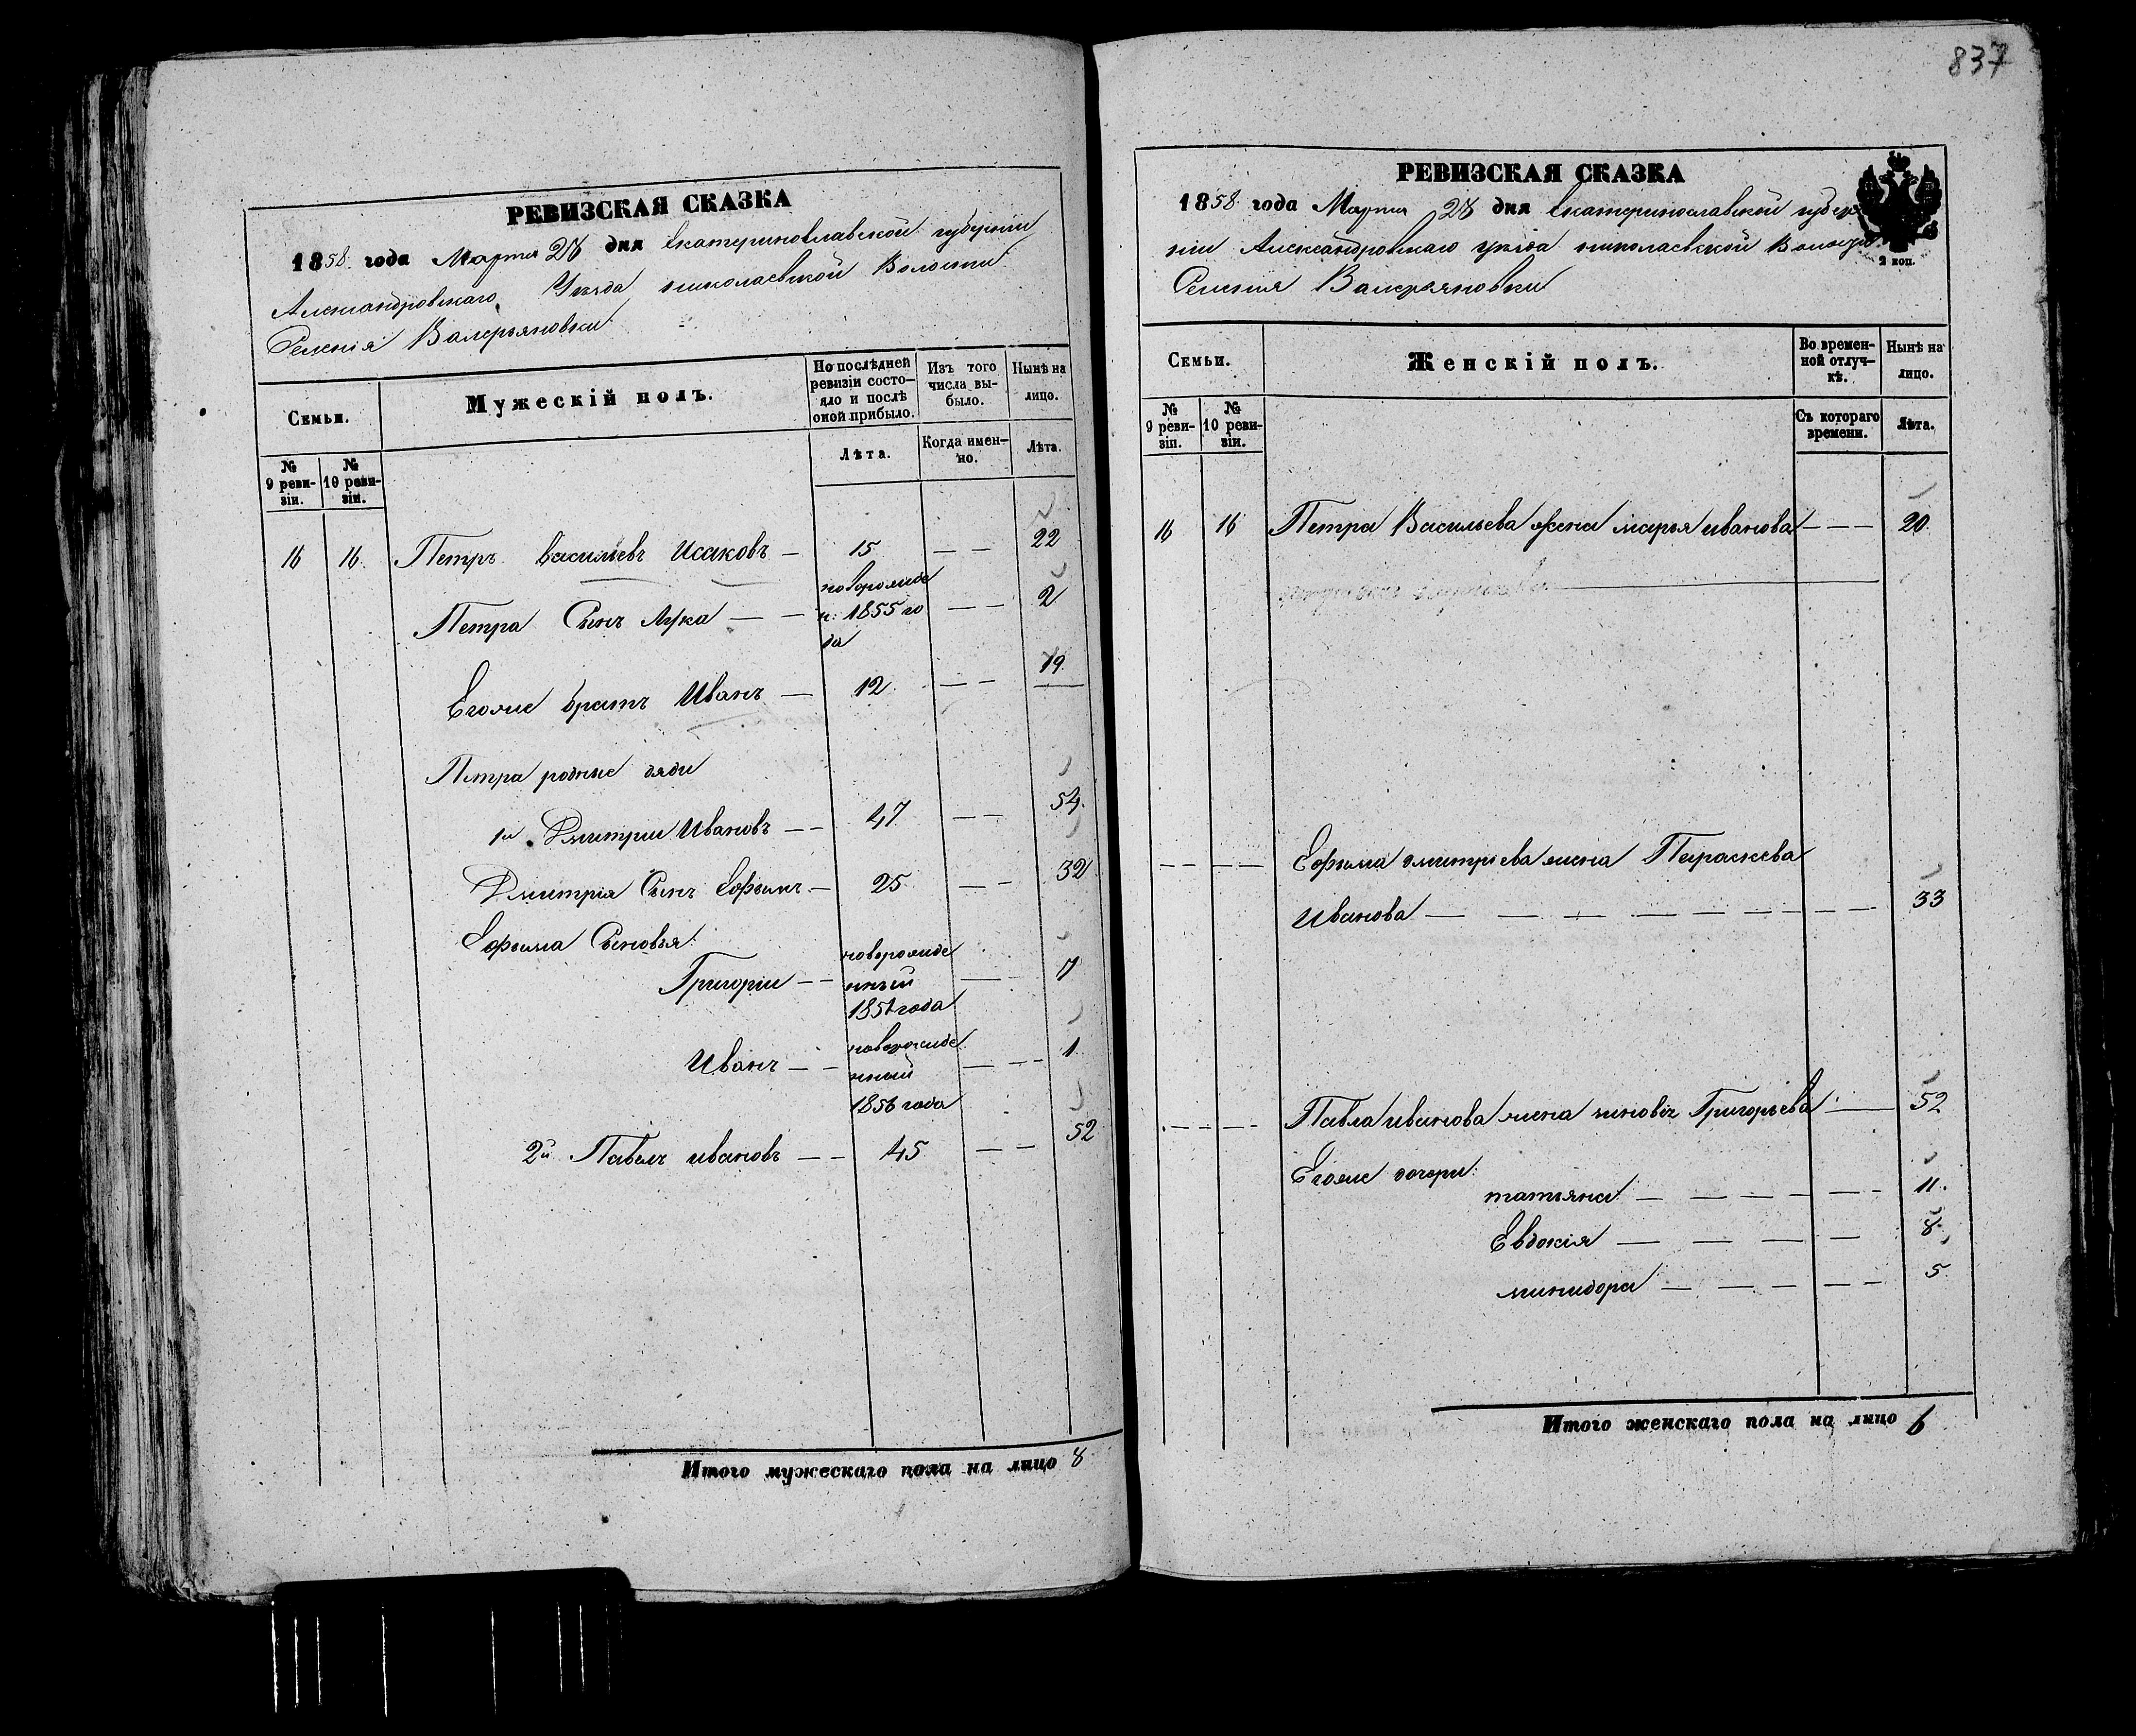 837
РЕВИЗСКАЯ СКАЗКА
1858 года Марта 28 дня Екатеринославской губерніи
Александровскаго Уезда николаевской Волости
Селенія Валерьяновки
Семьи.
№ 9 реви-зіи.
№ 10 реви-зіи.
Мужескій полъ.
По послѣдней ревизіи состо-яло и послѣ оной прибыло.
Лѣта.
Изъ того числа вы-было.
Когда имен-но.
Нынѣ на лицо.
Лѣта.
16 16. Петръ Васильевъ Исаковъ — 15 — — 22
Петра Сынъ Лука — — новорожде
н: 1855 го — — 2
да
Егоже братъ Иванъ — 12 — — 19.
Петра родные дяди
1й Дмитрии Ивановъ — — 47 — — 54.
Дмитрія Сынъ Ефимъ — 25 — — 32
Ефима Сыновья:
Григоріи — — новорожде
нный — — 7
1851 года
Иванъ — — новорожде
нный — — — 1.
1856 года
2й Павелъ ивановъ — — 45 — — 52
Итого мужескаго пола на лицо 8
РЕВИЗСКАЯ СКАЗКА
1858 года Марта 28 дня Екатеринославской губер
ніи Александровскаго уезда николаевской Волости
2 коп.
Селения Валерьяновки
Семьи.
№ 9 реви-зіи.
№ 10 реви-зіи.
Женскій полъ.
Во времен-ной отлуч-кѣ.
Съ котораго времени.
Нынѣ на лицо.
Лѣта.
16 16 Петра Васильева жена марья иванова — — — 20.
— — — — Ефима дмитріева жена Параскева
Иванова — — — — — — — — — 33
— — — — Павла иванова жена зиновія Григорьева — 52
Егоже дочери:
татьяна — — — — — — 11.
Евдокія — — — — — 8.
минидора — — — — — — 5.
Итого женскаго пола на лицо 6